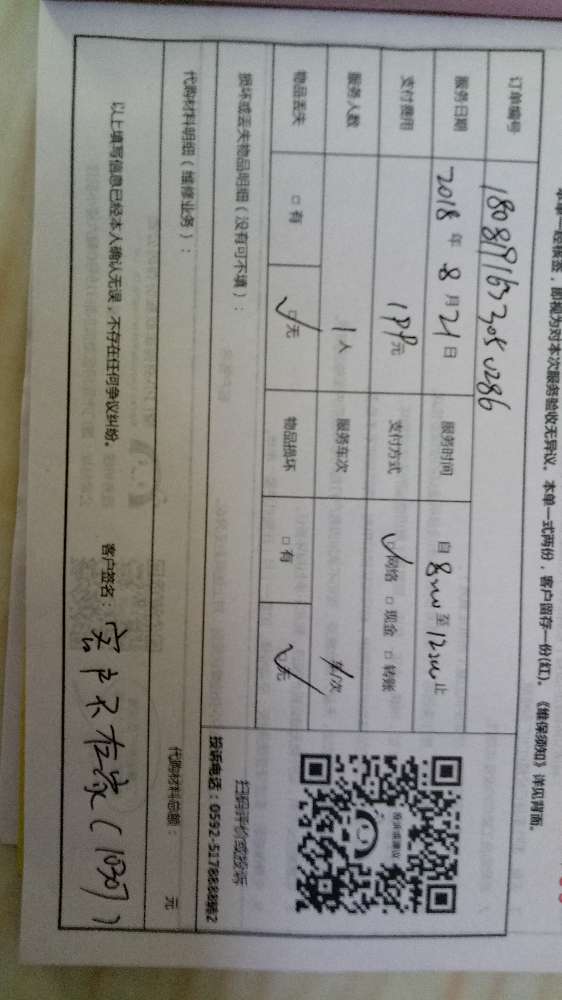 本单一经核签，即视为对本次服务验收无异议。本单一式两份，客户留存一份(红)。《维保须知》详见背面。
订单编号
服务日期 2018 年 8 月 21 日 服务时间 自 至 止
支付费用 元 支付方式 网络 □ 现金 □ 转账
服务人数 1 人 服务车次 次
物品丢失 □ 有 ☑ 无 物品损坏 □ 有 ☑ 无
损坏或丢失物品明细（没有可不填）：
代购材料明细（维修业务）： 代购材料总额： 元
以上填写信息已经本人确认无误，不存在任何争议纠纷。 客户签名：客户不在家（1030）
投诉或建议
扫码评价或投诉
投诉电话：0592-5178888转2